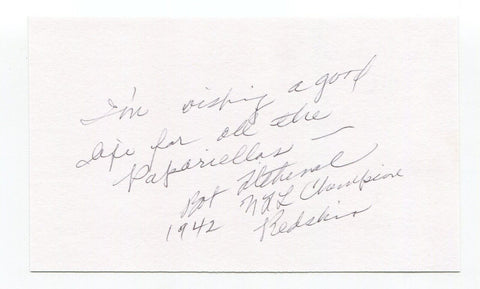 I'm wishing a good
life for all the
Papariellas —
Bob Titchenal
1942 NFL Champion
Redskin